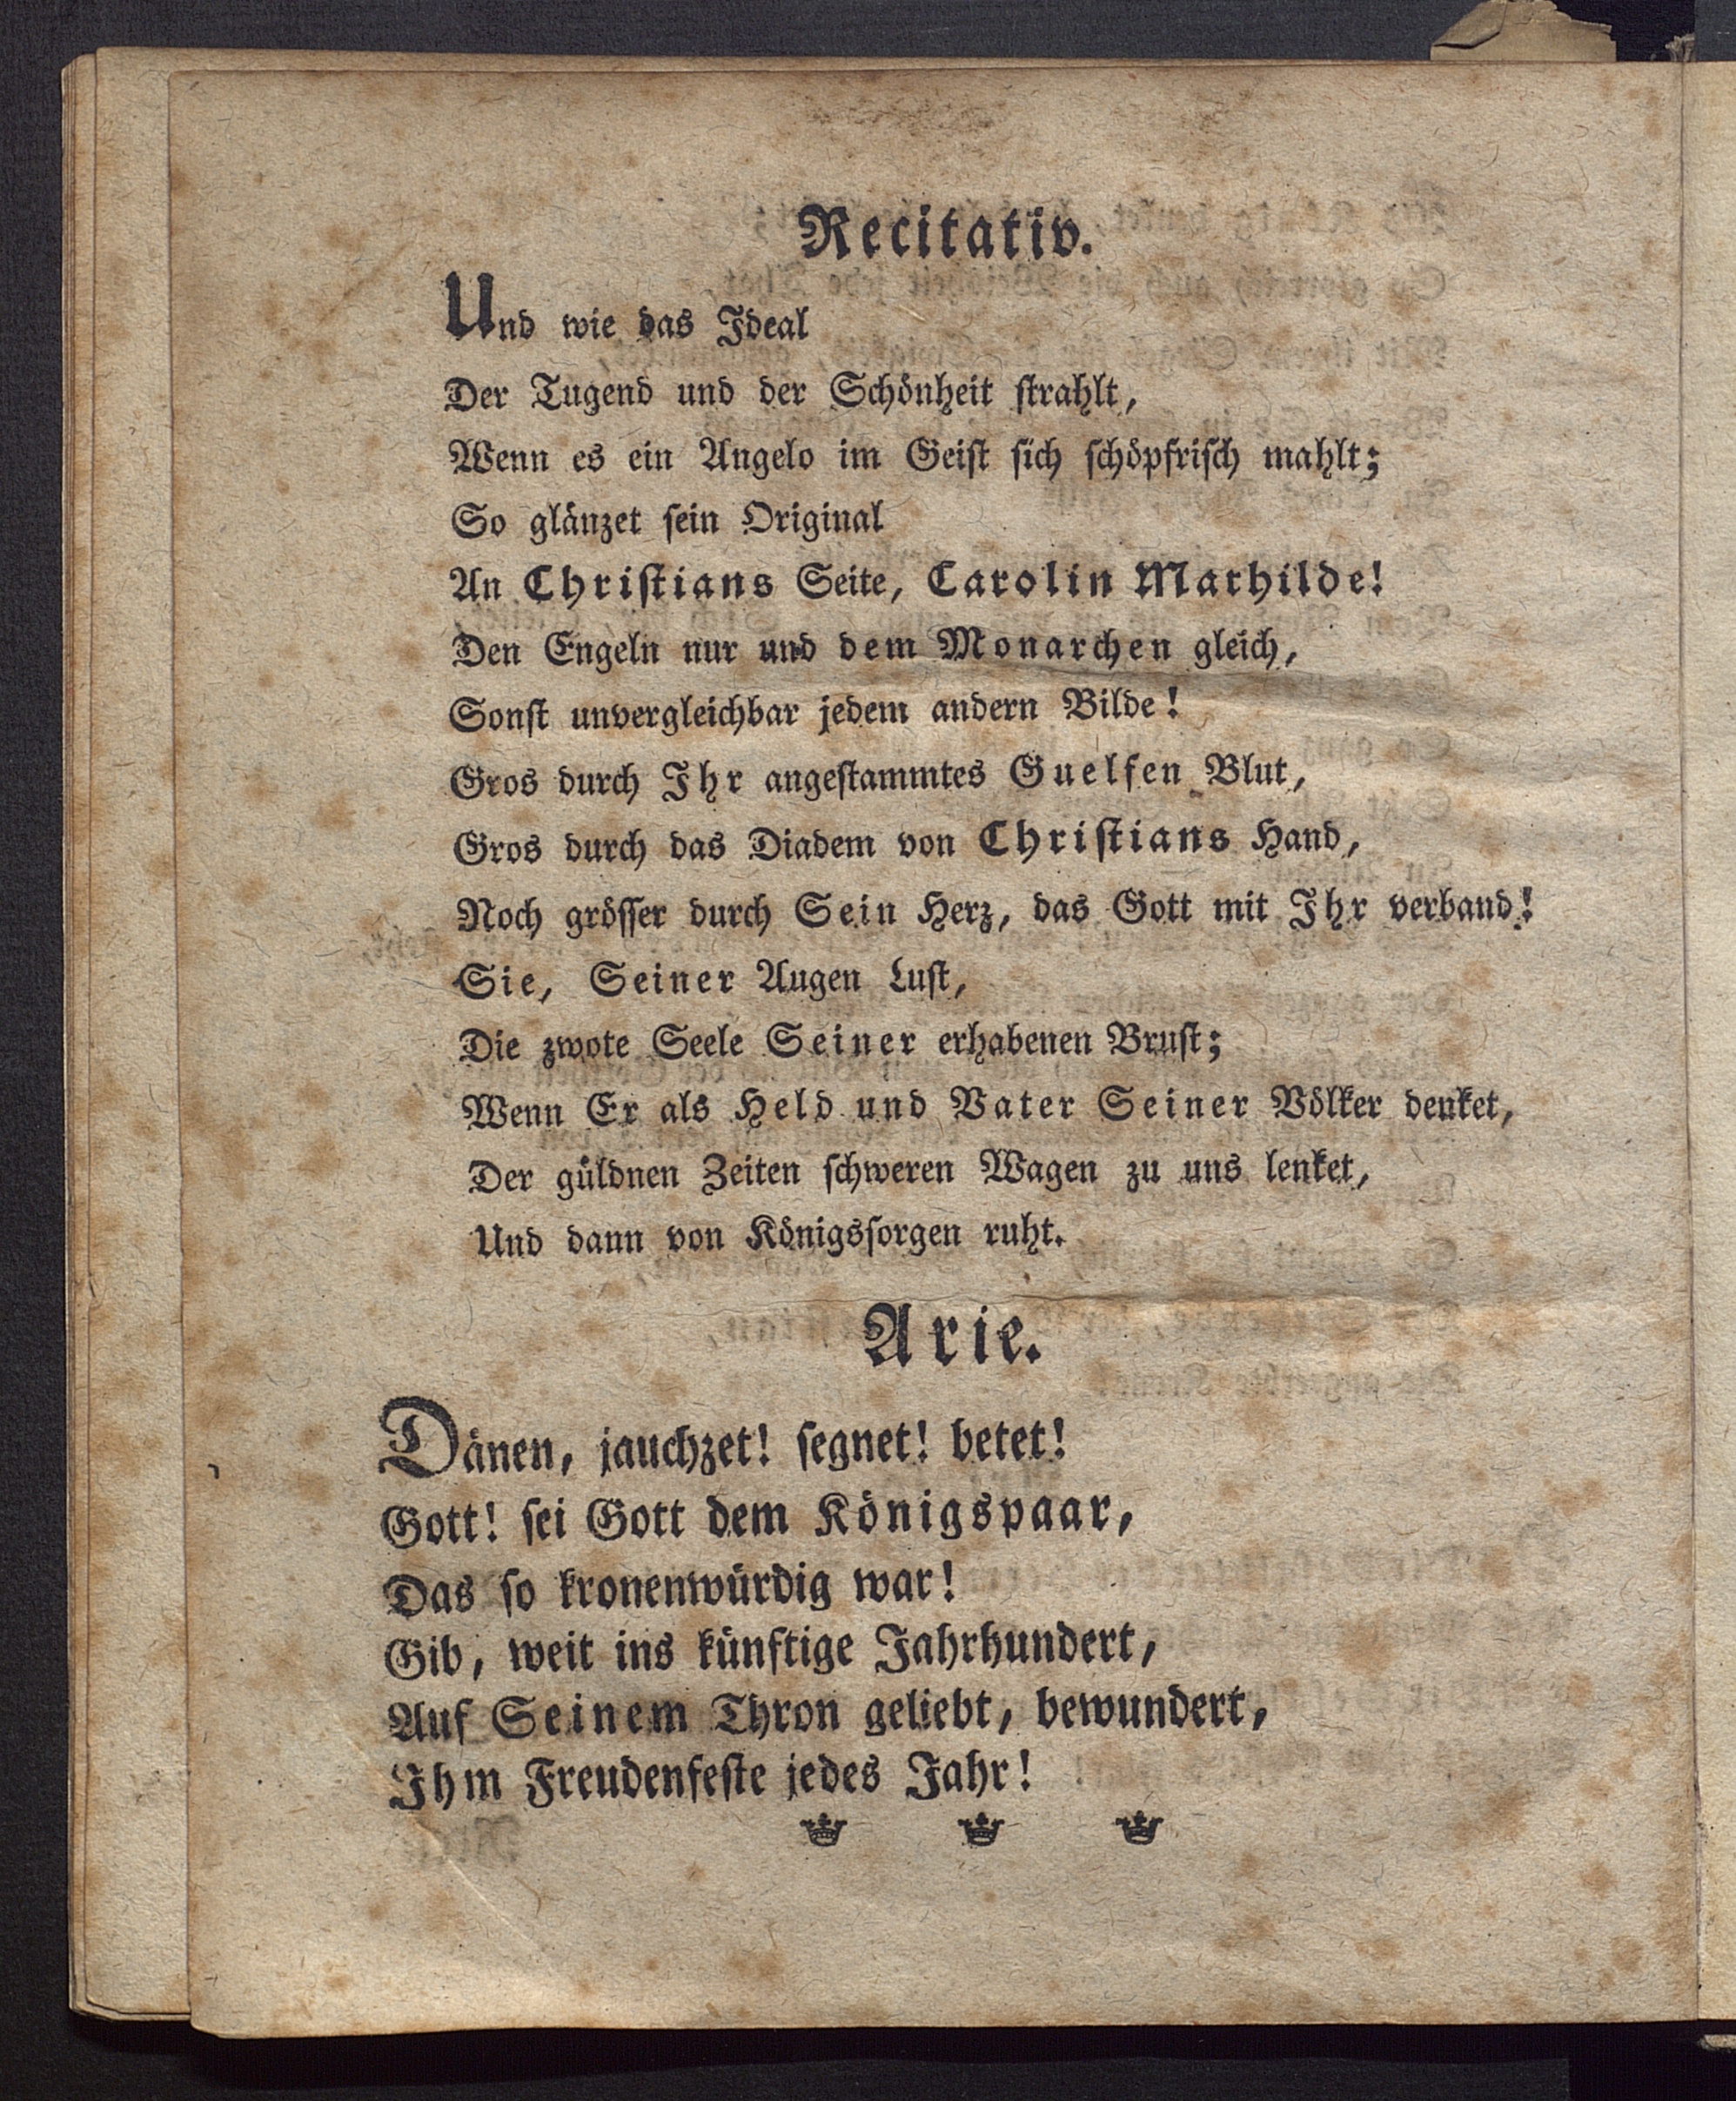 Recitativ.
Und wie das Ideal
Der Tugend und der Schönheit ſtrahlt,
Wenn es ein Angelo im Geiſt ſich ſchöpfriſch mahlt;
So glänzet ſein Original
An Chriſtians Seite, Carolin Mathilde!
Den Engeln nur und dem Monarchen gleich,
Sonſt unvergleichbar jedem andern Bilde!
Gros durch Ihr angeſtammtes Guelfen Blut,
Gros durch das Diadem von Chriſtians Hand,
Noch gröſſer durch Sein Herz, das Gott mit Ihr verband!
Sie, Seiner Augen Luſt,
Die zwote Seele Seiner erhabenen Bruſt;
Wenn Er als Held und Vater Seiner Völker denket,
Der güldnen Zeiten ſchweren Wagen zu uns lenket,
Und dann von Königsſorgen ruht.
Arie.
Dänen, jauchzet! ſegnet! betet!
Gott! ſei Gott dem Königspaar,
Das ſo kronenwürdig war!
Gib, weit ins künftige Jahrhundert,
Auf Seinem Thron geliebt, bewundert,
Ihm Freudenfeſte jedes Jahr!